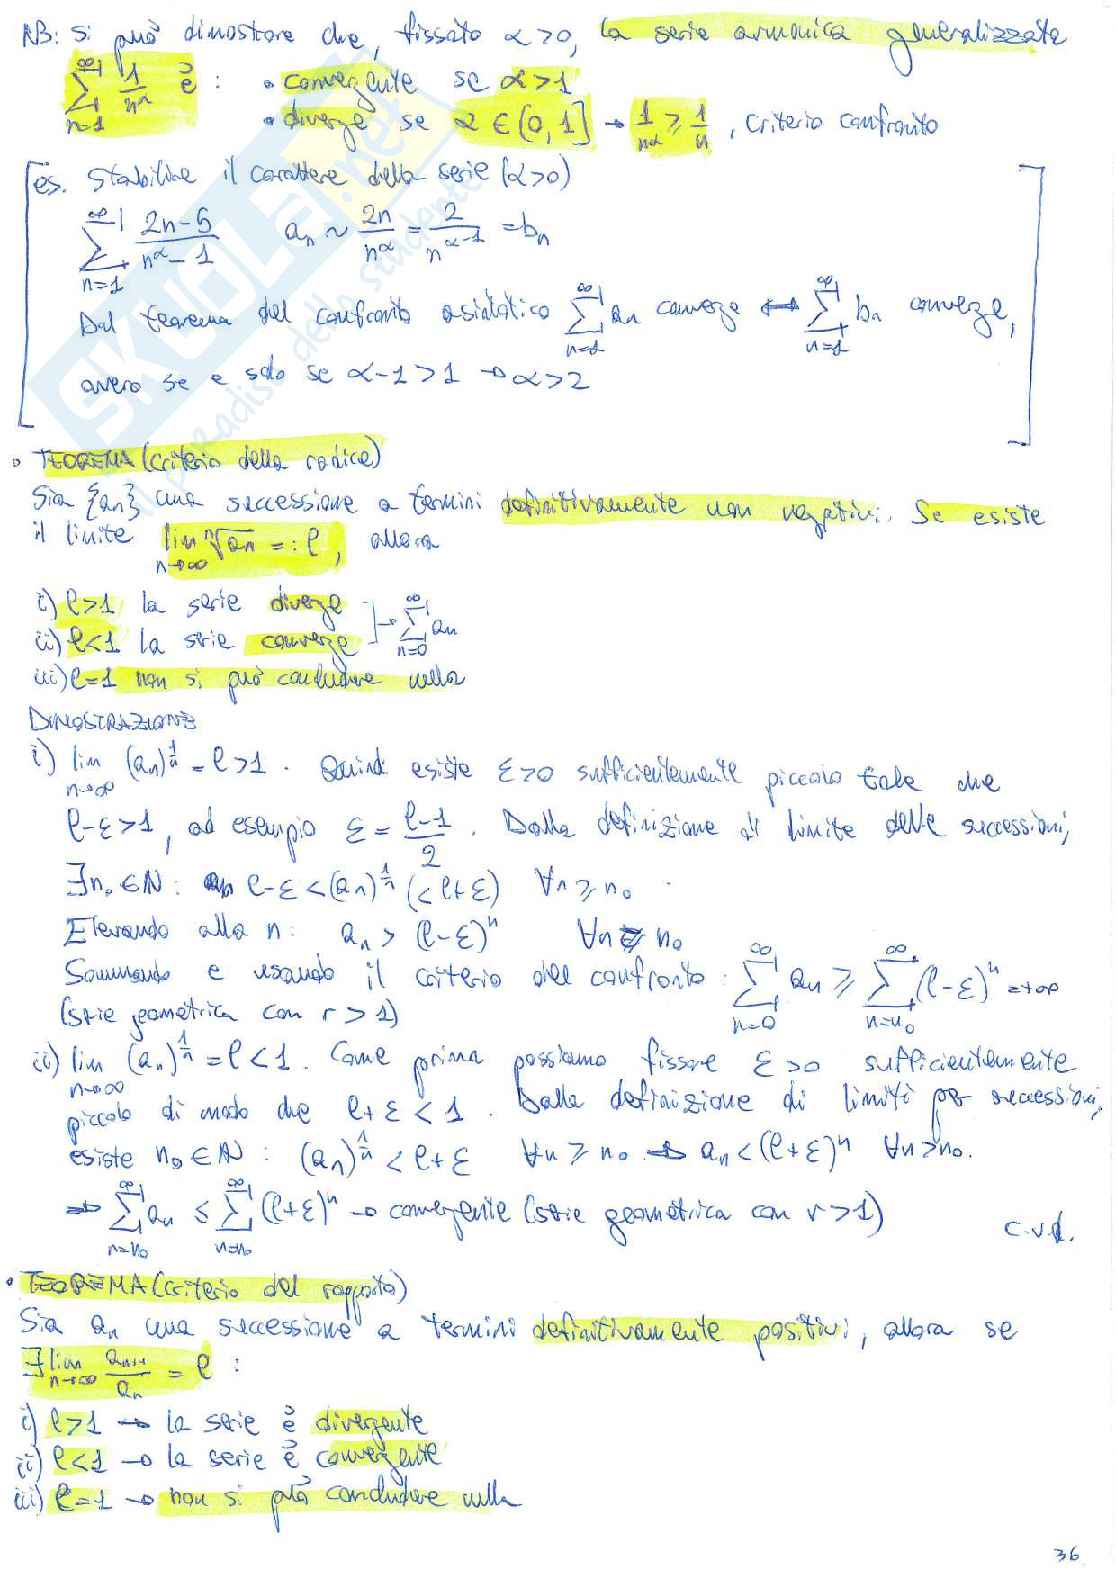 NB: Si può dimostrare che, fissato α>0, la serie armonica generalizzata
∑_{n=1}^{∞} 1/n^α è : • convergente se α>1
• diverge se α∈(0,1] → 1/n^α ≥ 1/n, criterio confronto
es. Stabilire il carattere della serie (α>0)
∑_{n=1}^{∞} (2n-5)/(n^α-1) a_n ~ 2n/n^α = 2/n^{α-1} = b_n
Dal teorema del confronto asintotico ∑_{n=1}^{∞} a_n converge ↔ ∑_{n=1}^{∞} b_n converge,
ovvero se e solo se α-1>1 → α>2
• TEOREMA (criterio della radice)
Sia {a_n} una successione a termini definitivamente non negativi. Se esiste
il limite lim_{n→∞} ⁿ√a_n =: ℓ, allora
i) ℓ>1 la serie diverge
ii) ℓ<1 la serie converge → ∑_{n=0}^{∞} a_n
iii) ℓ=1 non si può concludere nulla
DIMOSTRAZIONE
i) lim_{n→∞} (a_n)^{1/n} = ℓ>1. Quindi esiste ε>0 sufficientemente piccolo tale che
ℓ-ε>1, ad esempio ε = (ℓ-1)/2. Dalla definizione di limite delle successioni,
∃n₀∈N: ℓ-ε<(a_n)^{1/n} (<ℓ+ε) ∀n≥n₀.
Elevando alla n: a_n > (ℓ-ε)^n ∀n≥n₀
Sommando e usando il criterio del confronto: ∑_{n=0}^{∞} a_n ≥ ∑_{n=n₀}^{∞} (ℓ-ε)^n = +∞
(serie geometrica con r>1)
ii) lim_{n→∞} (a_n)^{1/n} = ℓ<1. Come prima possiamo fissare ε>0 sufficientemente
piccolo di modo che ℓ+ε<1. Dalla definizione di limiti per successioni,
esiste n₀∈N: (a_n)^{1/n} < ℓ+ε ∀n≥n₀ → a_n<(ℓ+ε)^n ∀n>n₀.
⇒ ∑_{n=n₀}^{∞} a_n ≤ ∑_{n=n₀}^{∞} (ℓ+ε)^n → convergente (serie geometrica con r>1)
c.v.d.
• TEOREMA (criterio del rapporto)
Sia a_n una successione a termini definitivamente positivi, allora se
∃ lim_{n→∞} a_{n+1}/a_n = ℓ :
i) ℓ>1 → la serie è divergente
ii) ℓ<1 → la serie è convergente
iii) ℓ=1 → non si può concludere nulla
36
SKUOLA.net
il paradiso dello studente